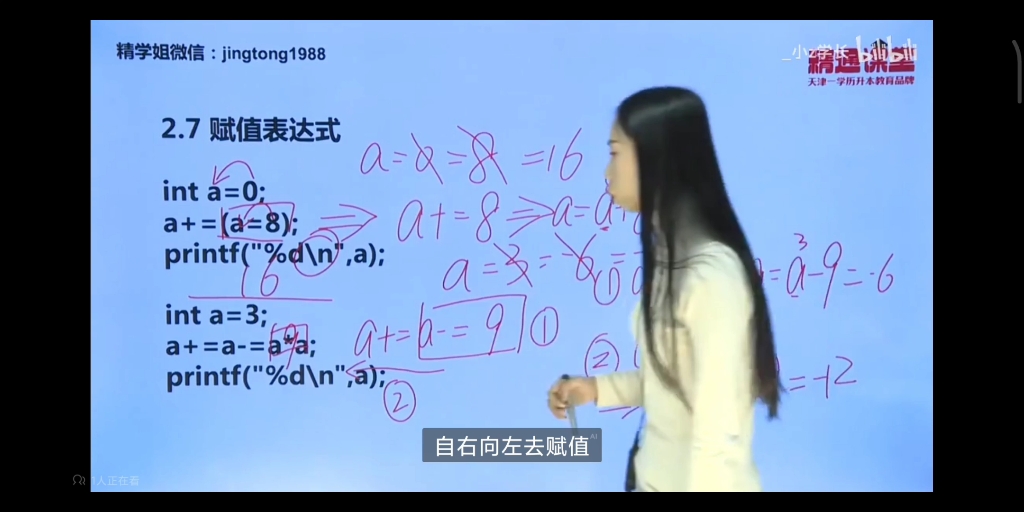 精学姐微信：jingtong1988
_小z学长 bilibili
精通课堂
天津一学历升本教育品牌
2.7 赋值表达式
int a=0;
a+=(a=8);
printf("%d\n",a);
16
int a=3;
a+=a-=a*a;
9
printf("%d\n",a);
a=0=8=16
a+=8⇒a=a+
a=3=-6=
① a=a-9=-6
3
a+=a-=9 ①
②
② =-12
自右向左去赋值
AI
1人正在看